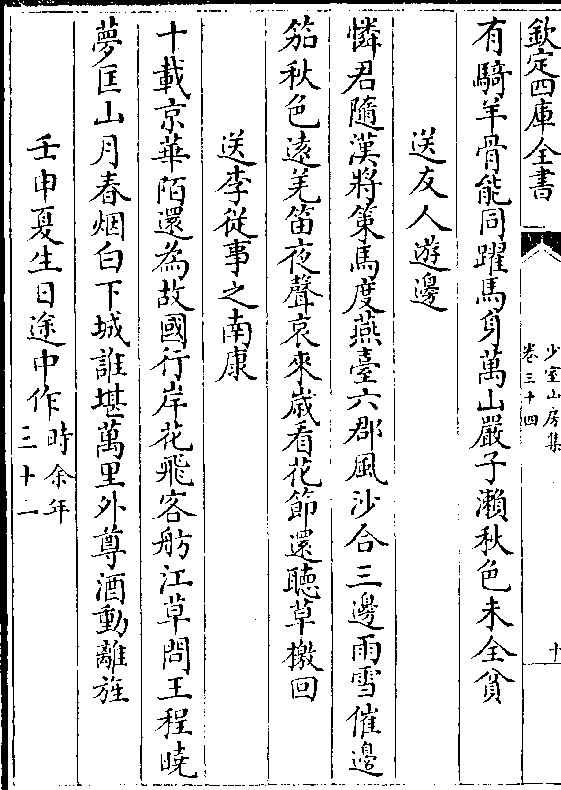 欽定四庫全書
少室山房集
卷三十四
十
有騎羊骨能同躍馬身萬山嚴子瀨秋色未全貧
送友人遊邊
憐君隨漢將策馬度燕臺六郡風沙合三邊雨雪催邊
笳秋色遠羌笛夜聲哀來歲看花節還聽草檄回
送李從事之南康
十載京華陌還為故國行岸花飛客舫江草問王程曉
夢匡山月春烟白下城誰堪萬里外尊酒動離旌
壬申夏生日途中作時余年
三十二